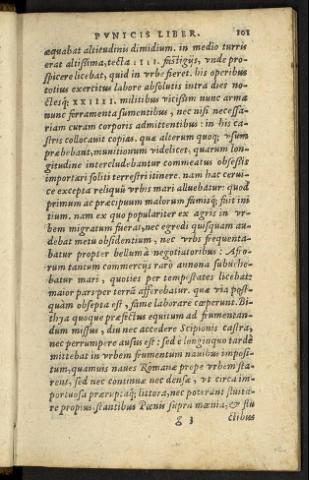 PVNICIS LIBER. 101
æquabat altitudinis dimidium. in medio turris
erat altißima, tecta IIII. fastigijs, vnde pro-
spicere licebat, quid in vrbe fieret. his operibus
totius exercitus labore absolutis intra dies no-
ctesq; XXIIII. militibus vicißim nunc arma
nunc ferramenta sumentibus, nec nisi necessa-
riam curam corporis admittentibus: in his ca-
stris collocauit copias. quæ alterum quoq; vsum
præbebant, munitionum videlicet, quarum lon-
gitudine intercludebantur commeatus obsessis
importari soliti terrestri itinere. nam hac cerui-
ce excepta reliquū vrbis mari alluebatur: quod
primum ac præcipuum malorum fumisq; fuit ini
tium. nam ex quo populariter ex agris in vr-
bem migratum fuerat, nec egredi quisquam au-
debat metu obsidentium, nec vrbs frequenta-
batur propter bellum à negotiatoribus: Afro-
rum tantum commercijs rarò annona subueho-
batur mari, quoties per tempestates licebat:
maior pars per terrā afferebatur. quæ via post-
quàm obsepta est, fame laborare cœperunt. Bi-
thya quoque præfectus equitum ad frumentan-
dum missus, diu nec accedere Scipionis castra,
nec perrumpere ausus est: sed è longinquo tardè
mittebat in vrbem frumentum nauibus imposi-
tum, quamuis naues Romanæ prope vrbem sta-
rent, sed nec continuæ nec densæ, vt circa im-
portuosa præruptaq; littora, nec poterant fluita-
re propius stantibus Pœnis supra mœnia, & flu
g 3 ctibus